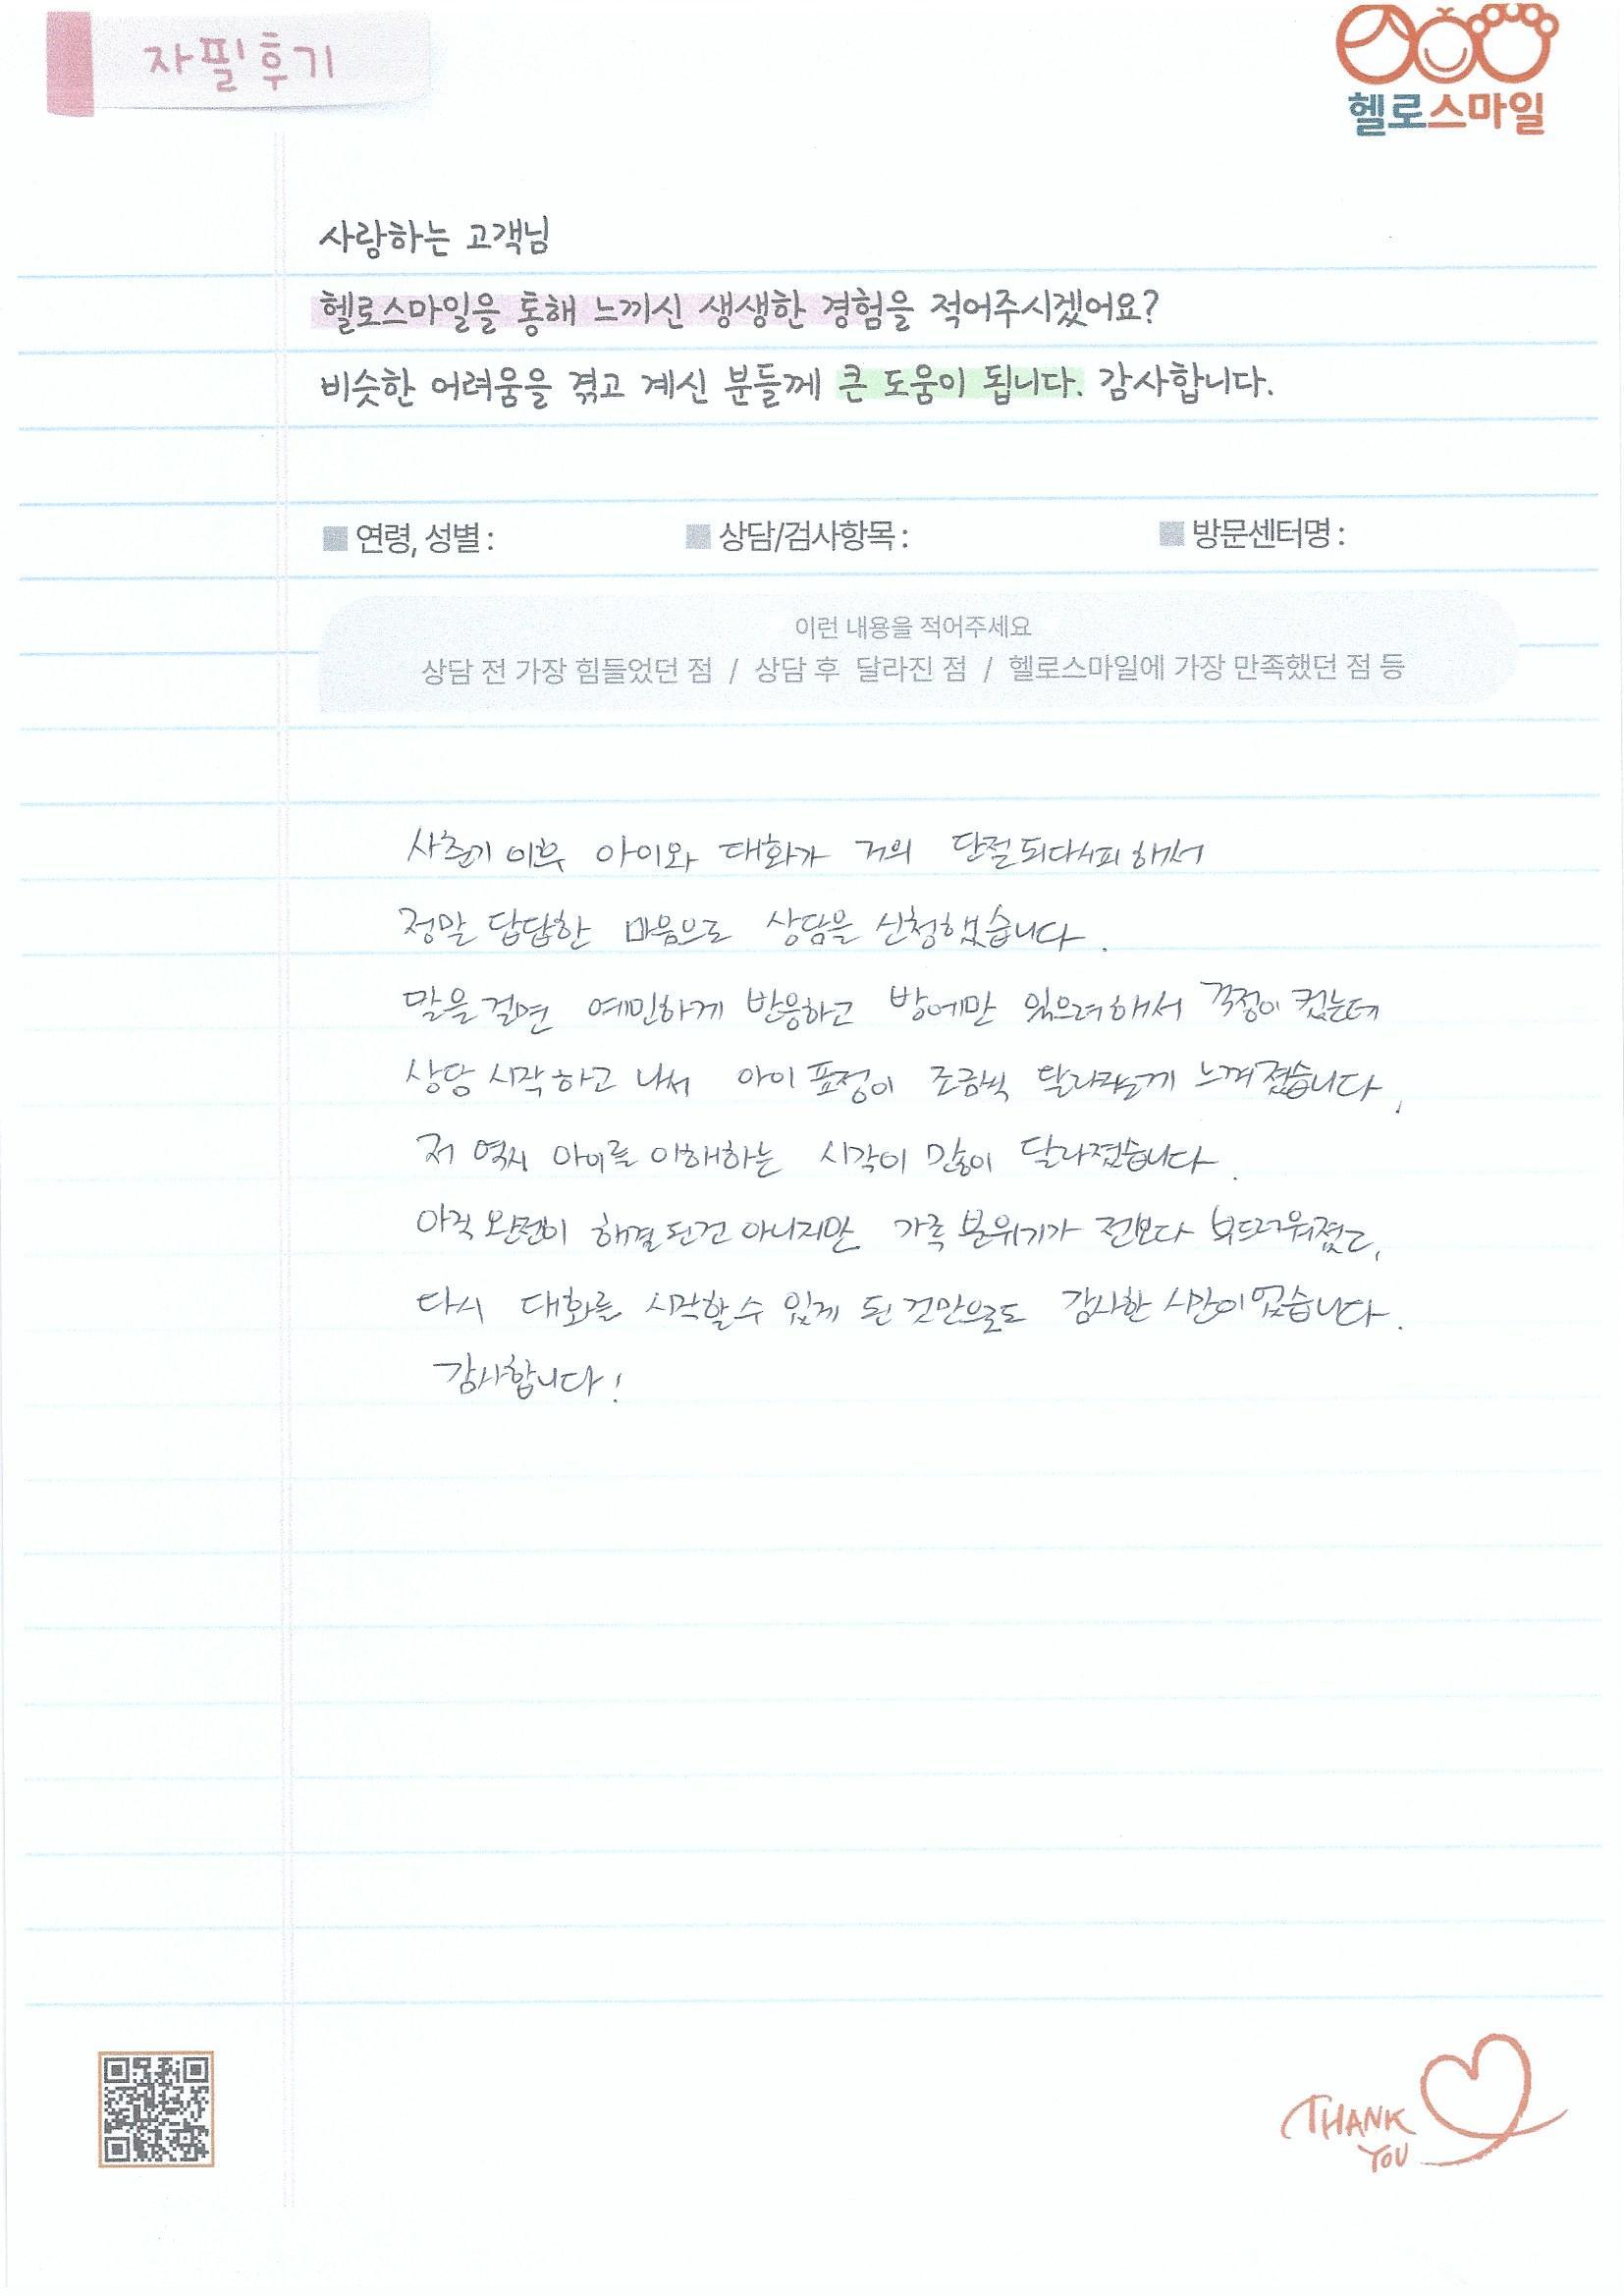 자필후기
헬로스마일
사랑하는 고객님
헬로스마일을 통해 느끼신 생생한 경험을 적어주시겠어요?
비슷한 어려움을 겪고 계신 분들께 큰 도움이 됩니다. 감사합니다.
연령, 성별 : 상담/검사항목 : 방문센터명 :
이런 내용을 적어주세요
상담 전 가장 힘들었던 점 / 상담 후 달라진 점 / 헬로스마일에 가장 만족했던 점 등
사춘기 이후 아이와 대화가 거의 단절되다시피 해서
정말 답답한 마음으로 상담을 신청했습니다.
말을 걸면 예민하게 반응하고 방에만 있으려해서 걱정이 컸는데
상담 시작하고 나서 아이 표정이 조금씩 달라지는게 느껴졌습니다.
저 역시 아이를 이해하는 시각이 많이 달라졌습니다.
아직 완전이 해결된건 아니지만 가족 분위기가 전보다 부드러워졌고,
다시 대화를 시작할수 있게 된 것만으로도 감사한 시간이었습니다.
감사합니다!
THANK
YOU